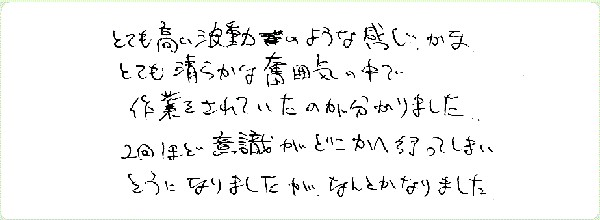 とても高い波動のような感じ、かな
とても清らかな奮囲気の中で
作業をされていたのが分かりました
2回ほど意識がどこかへ行ってしまい
そうになりましたが、なんとかなりました